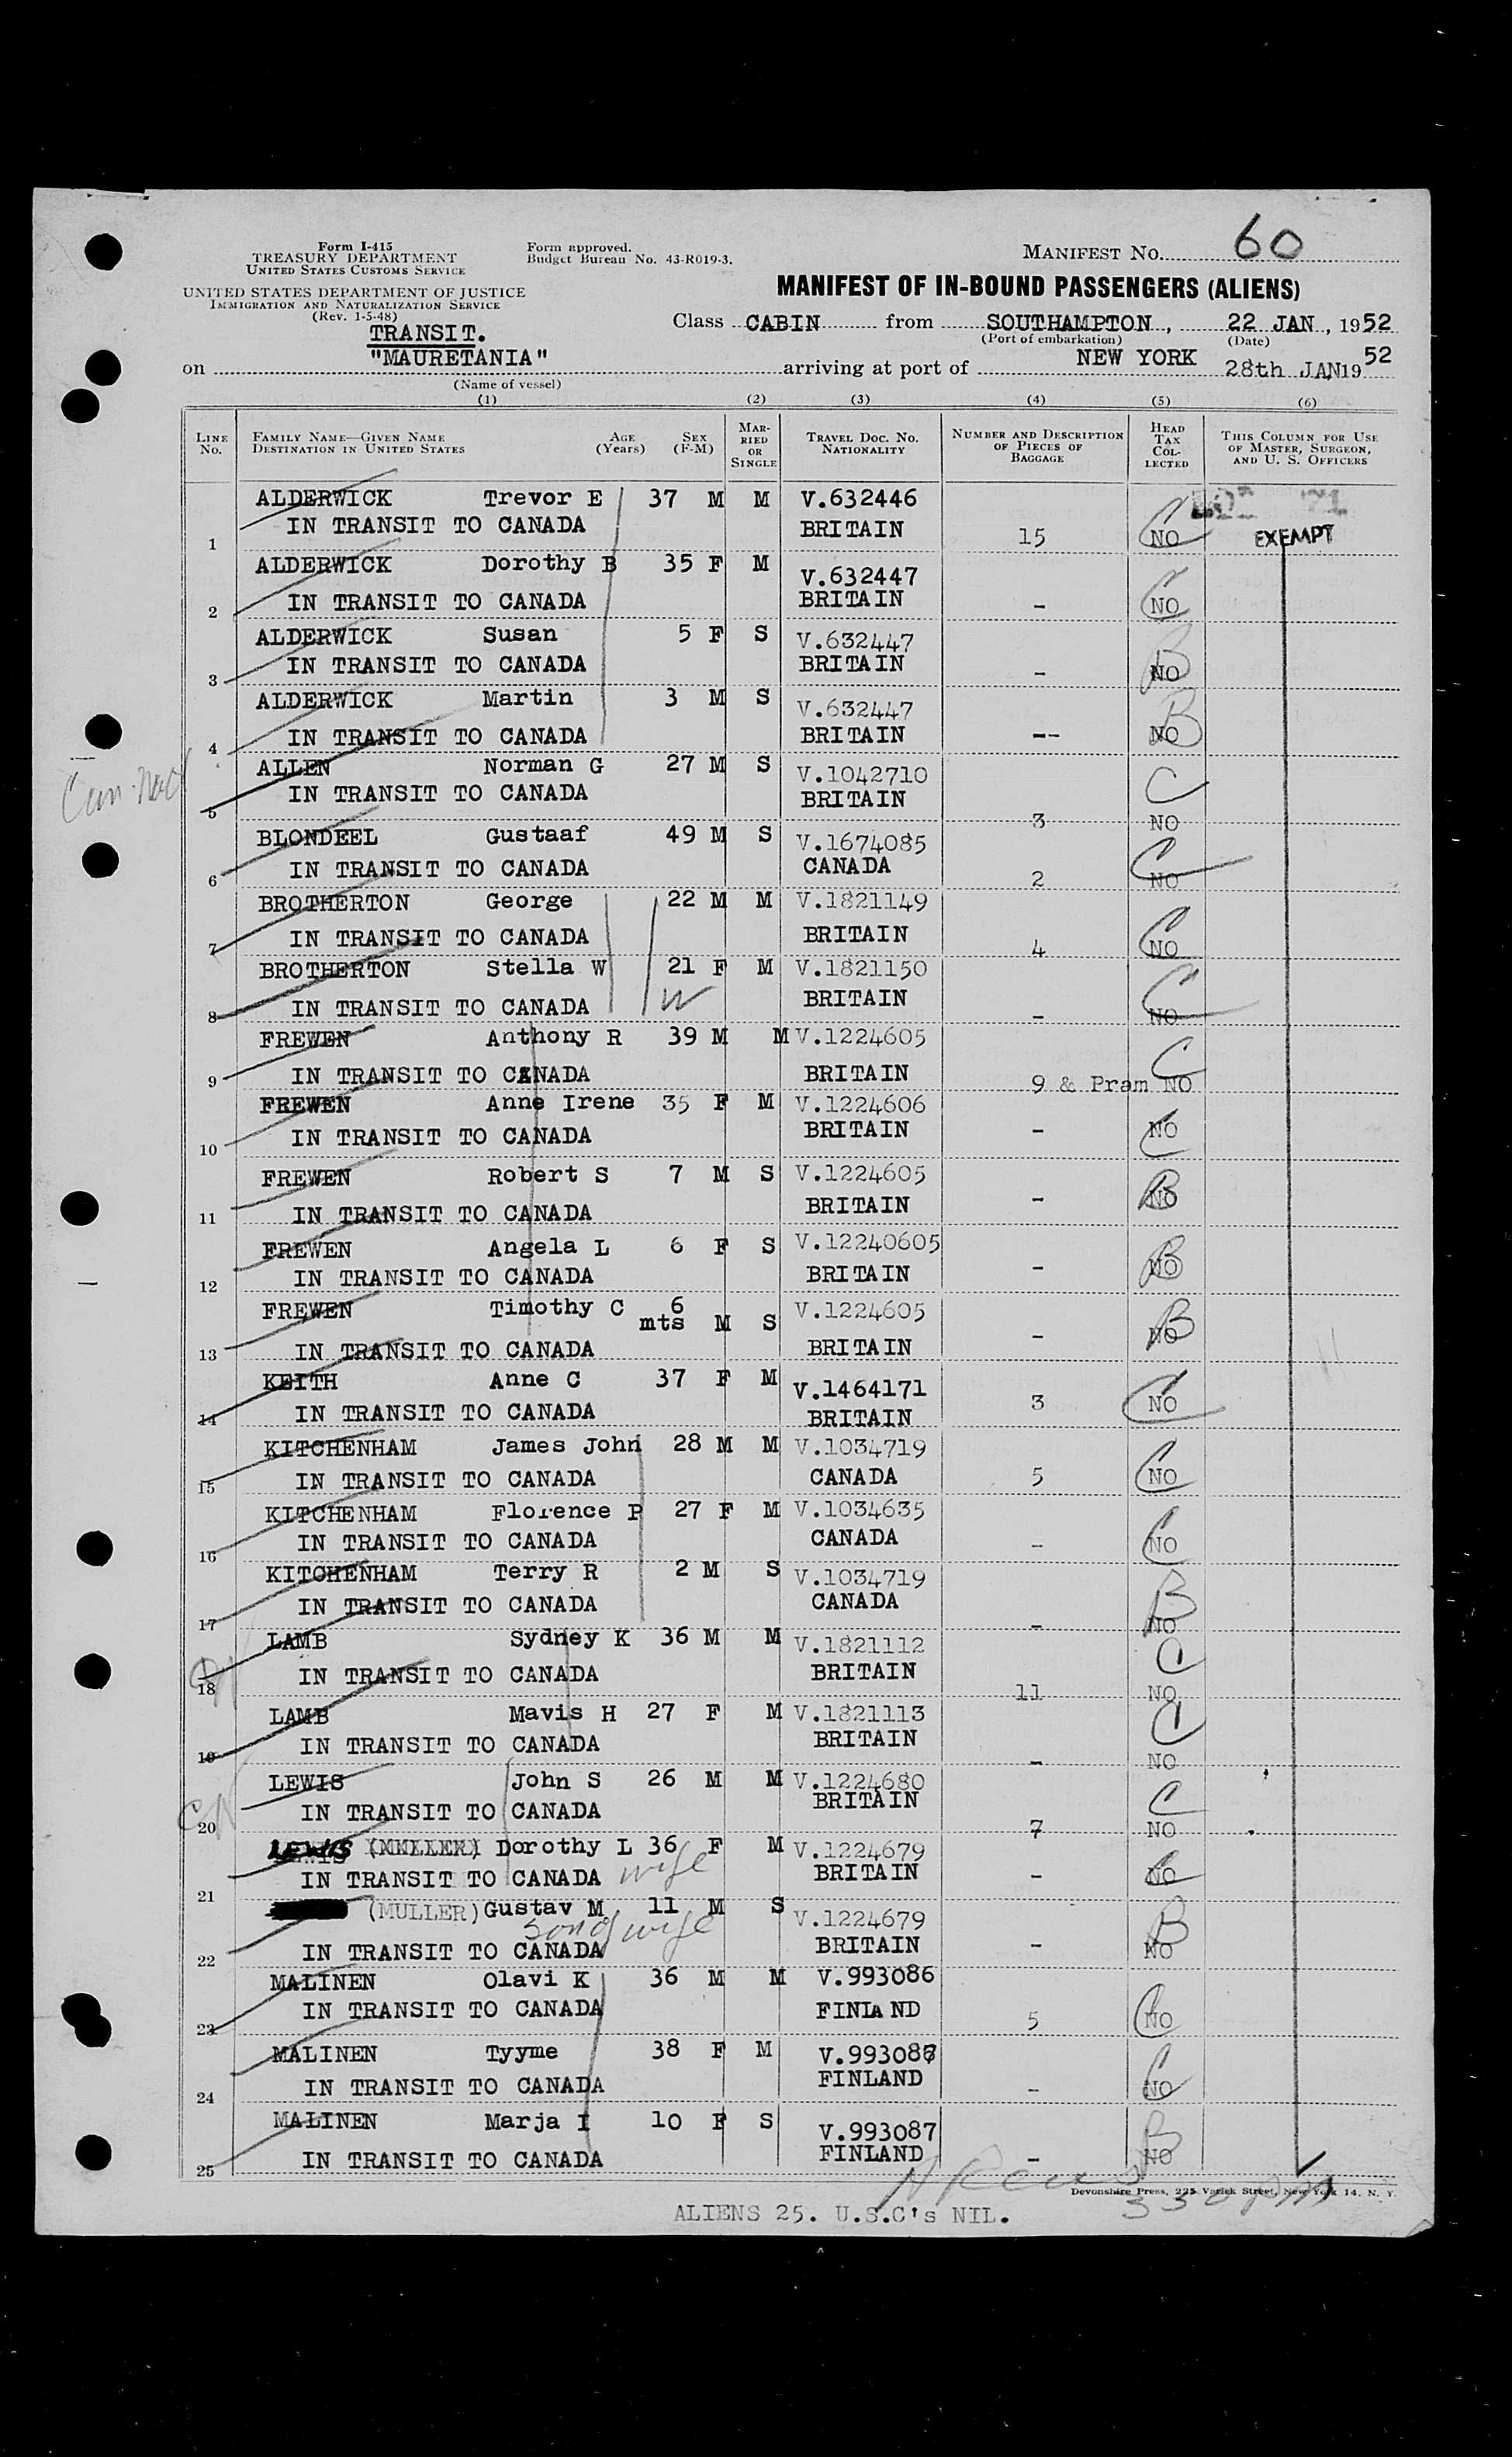 Form I-415
TREASURY DEPARTMENT
UNITED STATES CUSTOMS SERVICE
UNITED STATES DEPARTMENT OF JUSTICE
IMMIGRATION AND NATURALIZATION SERVICE
(Rev. 1-5-48)
Form approved.
Budget Bureau No. 43-R019-3.
MANIFEST No. 60
MANIFEST OF IN-BOUND PASSENGERS (ALIENS)
TRANSIT.
Class CABIN from SOUTHAMPTON, 22 JAN, 1952
(Port of embarkation) (Date)
on "MAURETANIA" arriving at port of NEW YORK 28th JAN 1952
(Name of vessel)
(1) (2) (3) (4) (5) (6)
LINE No. FAMILY NAME—GIVEN NAME DESTINATION IN UNITED STATES AGE (Years) SEX (F-M) MARRIED OR SINGLE TRAVEL DOC. No. NATIONALITY NUMBER AND DESCRIPTION OF PIECES OF BAGGAGE HEAD TAX COLLECTED THIS COLUMN FOR USE OF MASTER, SURGEON, AND U. S. OFFICERS
ALDERWICK Trevor E 37 M M V.632446
IN TRANSIT TO CANADA BRITAIN
1 15 NO C EXEMPT
ALDERWICK Dorothy B 35 F M V.632447
2 IN TRANSIT TO CANADA BRITAIN - NO C
ALDERWICK Susan 5 F S V.632447
3 IN TRANSIT TO CANADA BRITAIN - NO B
ALDERWICK Martin 3 M S V.632447
4 IN TRANSIT TO CANADA BRITAIN -- NO B
ALLEN Norman G 27 M S V.1042710
IN TRANSIT TO CANADA BRITAIN C
5 3 NO
BLONDEEL Gustaaf 49 M S V.1674085
6 IN TRANSIT TO CANADA CANADA 2 NO C
BROTHERTON George 22 M M V.1821149
7 IN TRANSIT TO CANADA BRITAIN 4 NO C
BROTHERTON Stella W 21 F M V.1821150
8 IN TRANSIT TO CANADA W BRITAIN - NO C
FREWEN Anthony R 39 M M V.1224605
9 IN TRANSIT TO CANADA BRITAIN 9 & Pram NO C
FREWEN Anne Irene 35 F M V.1224606
10 IN TRANSIT TO CANADA BRITAIN - NO C
FREWEN Robert S 7 M S V.1224605
11 IN TRANSIT TO CANADA BRITAIN - NO B
FREWEN Angela L 6 F S V.12240605
12 IN TRANSIT TO CANADA BRITAIN - NO B
FREWEN Timothy C 6 mts M S V.1224605
13 IN TRANSIT TO CANADA BRITAIN - NO B
KEITH Anne C 37 F M V.1464171
14 IN TRANSIT TO CANADA BRITAIN 3 NO C
KITCHENHAM James John 28 M M V.1034719
15 IN TRANSIT TO CANADA CANADA 5 NO C
KITCHENHAM Florence P 27 F M V.1034635
16 IN TRANSIT TO CANADA CANADA - NO C
KITCHENHAM Terry R 2 M S V.1034719
17 IN TRANSIT TO CANADA CANADA - NO B
LAMB Sydney K 36 M M V.1821112
IN TRANSIT TO CANADA BRITAIN C
18 11 NO
LAMB Mavis H 27 F M V.1821113
IN TRANSIT TO CANADA BRITAIN C
19 - NO
LEWIS John S 26 M M V.1224680
IN TRANSIT TO CANADA BRITAIN C
20 7 NO
LEWIS (MULLER) Dorothy L 36 F M V.1224679
IN TRANSIT TO CANADA wife BRITAIN - NO C
21
(MULLER) Gustav M 11 M S V.1224679
son of wife
22 IN TRANSIT TO CANADA BRITAIN - NO B
MALINEN Olavi K 36 M M V.993086
IN TRANSIT TO CANADA FINLAND
23 5 NO C
MALINEN Tyyme 38 F M V.993087
24 IN TRANSIT TO CANADA FINLAND - NO C
MALINEN Marja I 10 F S V.993087
25 IN TRANSIT TO CANADA FINLAND - NO B
Devonshire Press, 225 Varick Street, New York 14, N. Y.
330 pm
ALIENS 25. U.S.C's NIL.